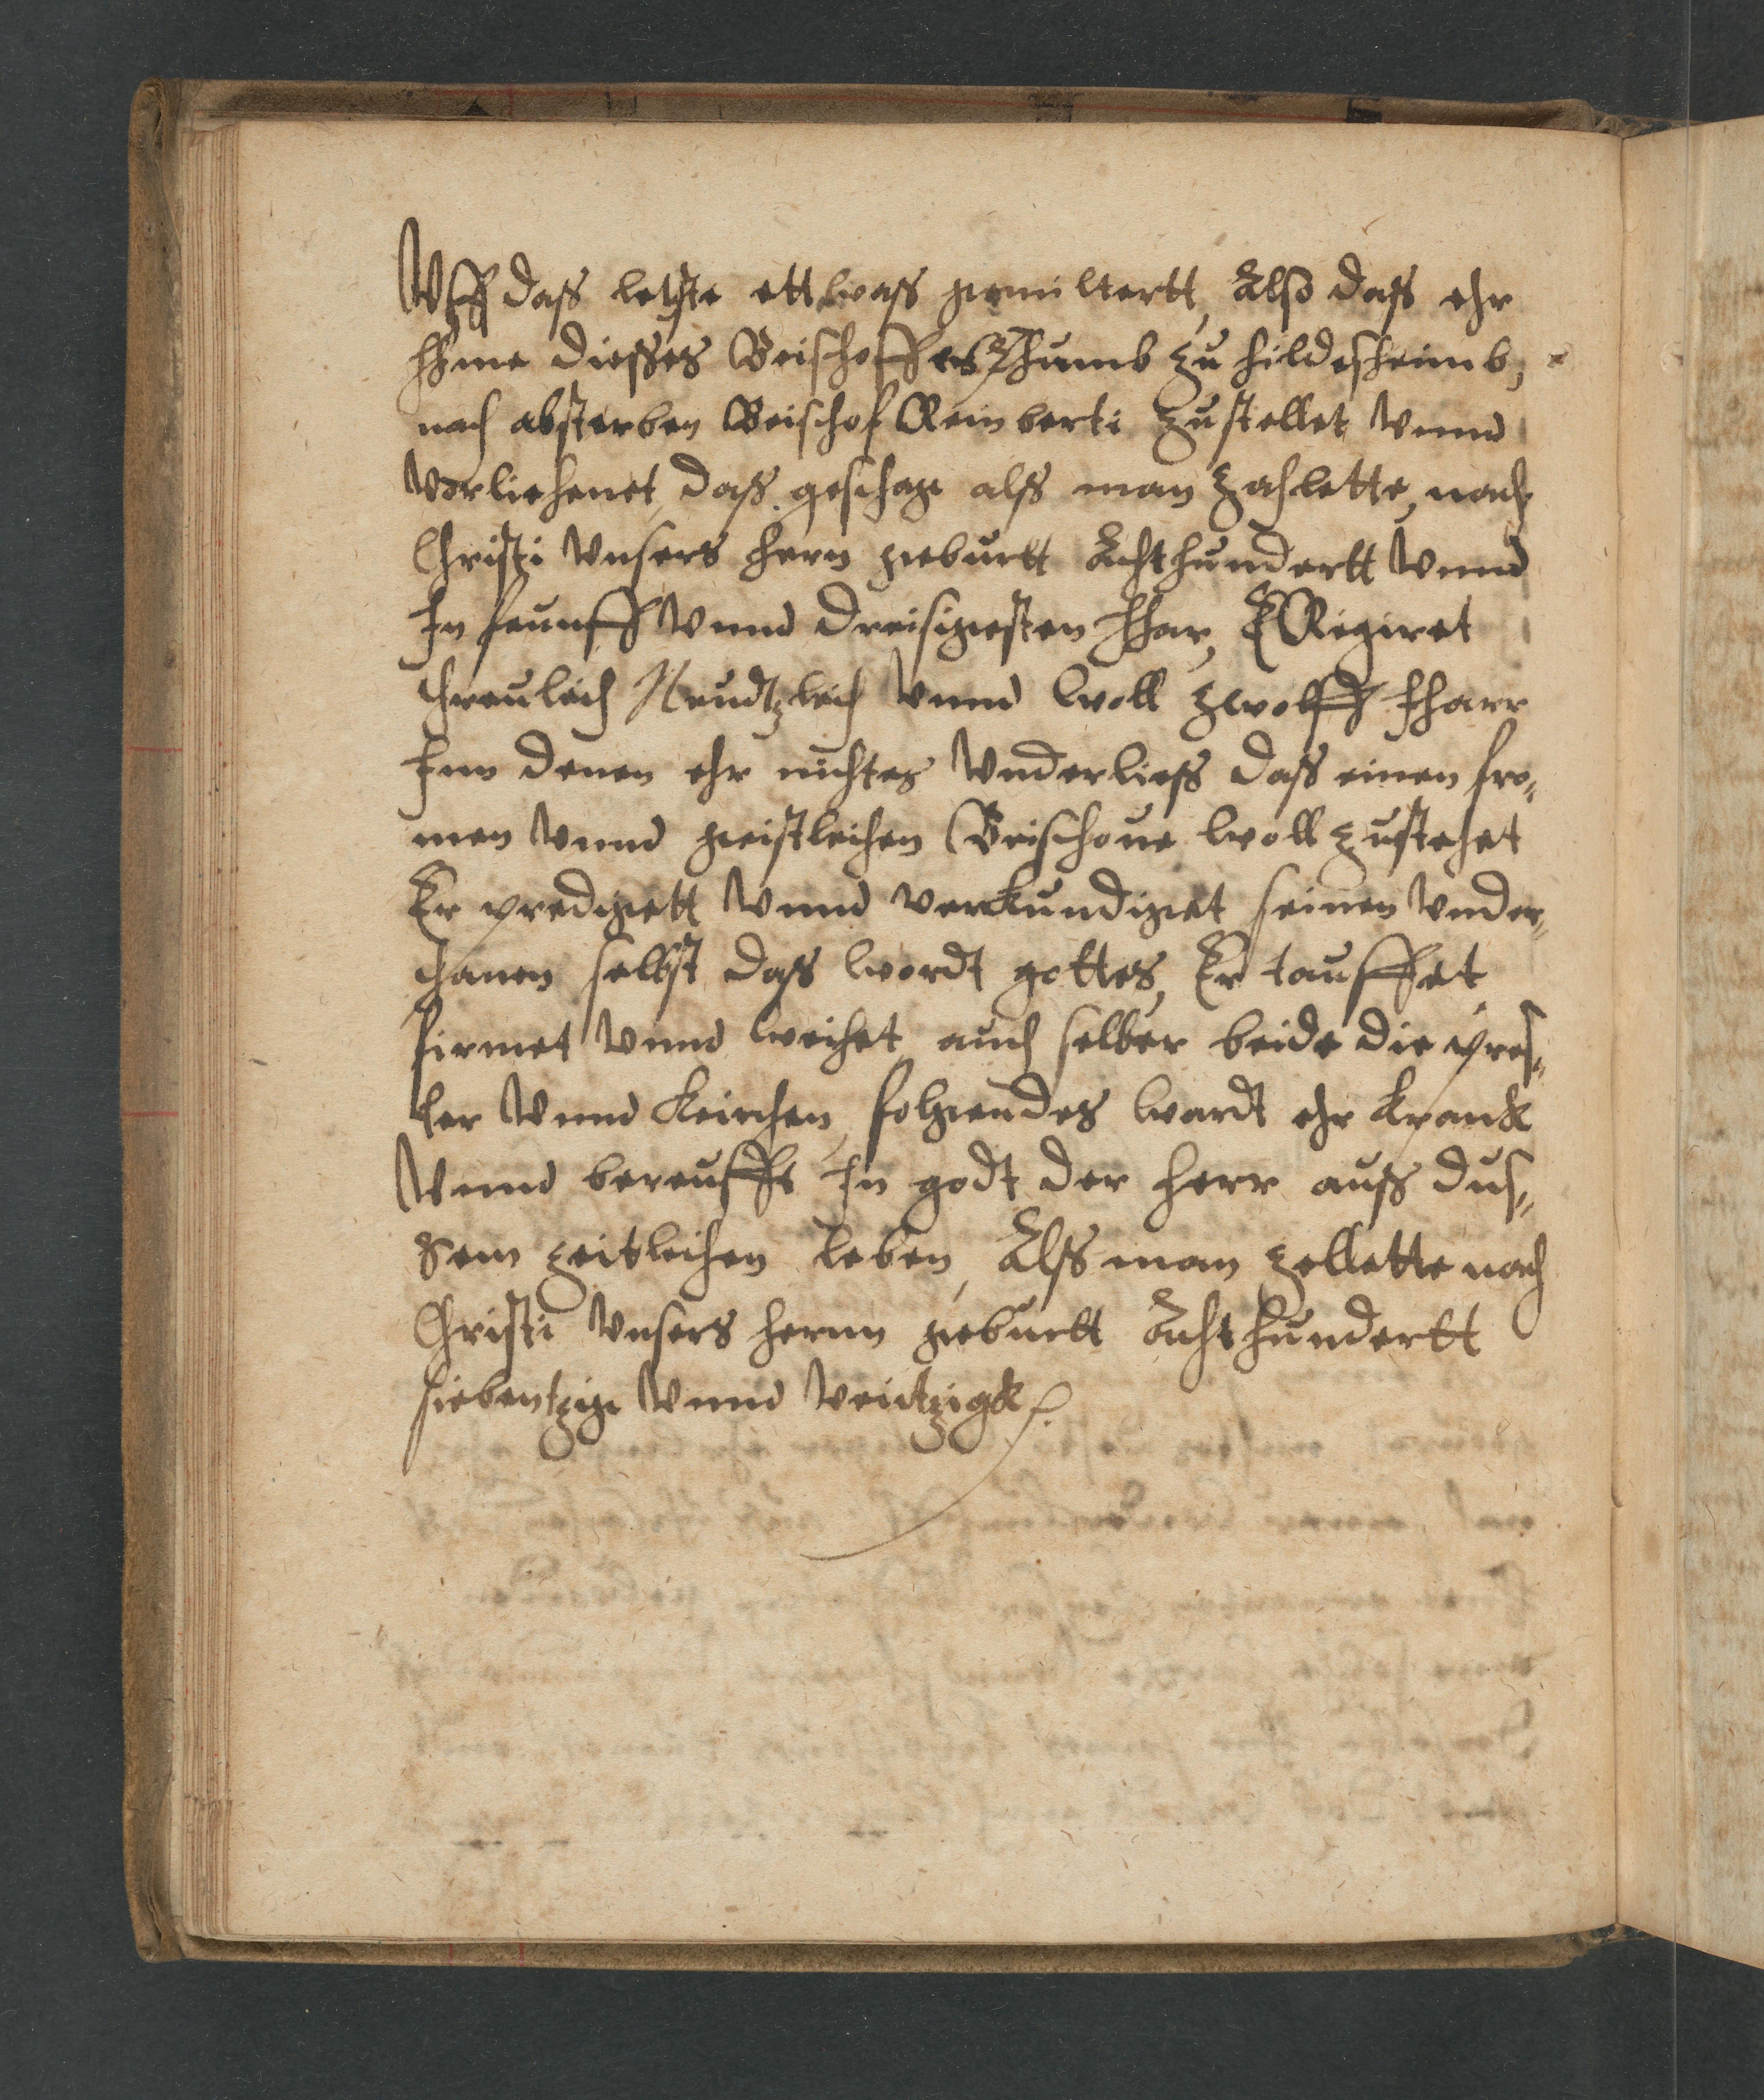 Vff daß letste ettwaß gemiltertt, Also daß ehr
Ihme dießes Beischoffes Thumb zu Hildesheimb,
nach absterben Beischof Reinberti zustellet vnnd
Vorliehenet, daß geschage alß man zahlette, nach
Christi Vnsers Hern geburtt Achthundertt vnnd
In feunff vnnd dreisigesten Jhar, Er Regiret
threulich Neudtzlich vnnd woll zwolff Jharr
Inn denen ehr nichtes Vnderließ daß einen fro,,
men vnnd geistleichen Beischoue woll zustehet
Er predigett vnnd verkundiget seinen Vnder,,
thanen selbst daß wordt gottes, Er tauffet
firmet vnnd weihet auch selber beide die pres,,
ter vnnd Keirchen, folgendes wardt ehr Kranck
Vnnd bereuffte In godt der Herr auß dus,,
sem zeitleichen leben, Alß man zellette nach
Christi Vnsers Hernn geburtt Achthundertt
siebentzige vnnd